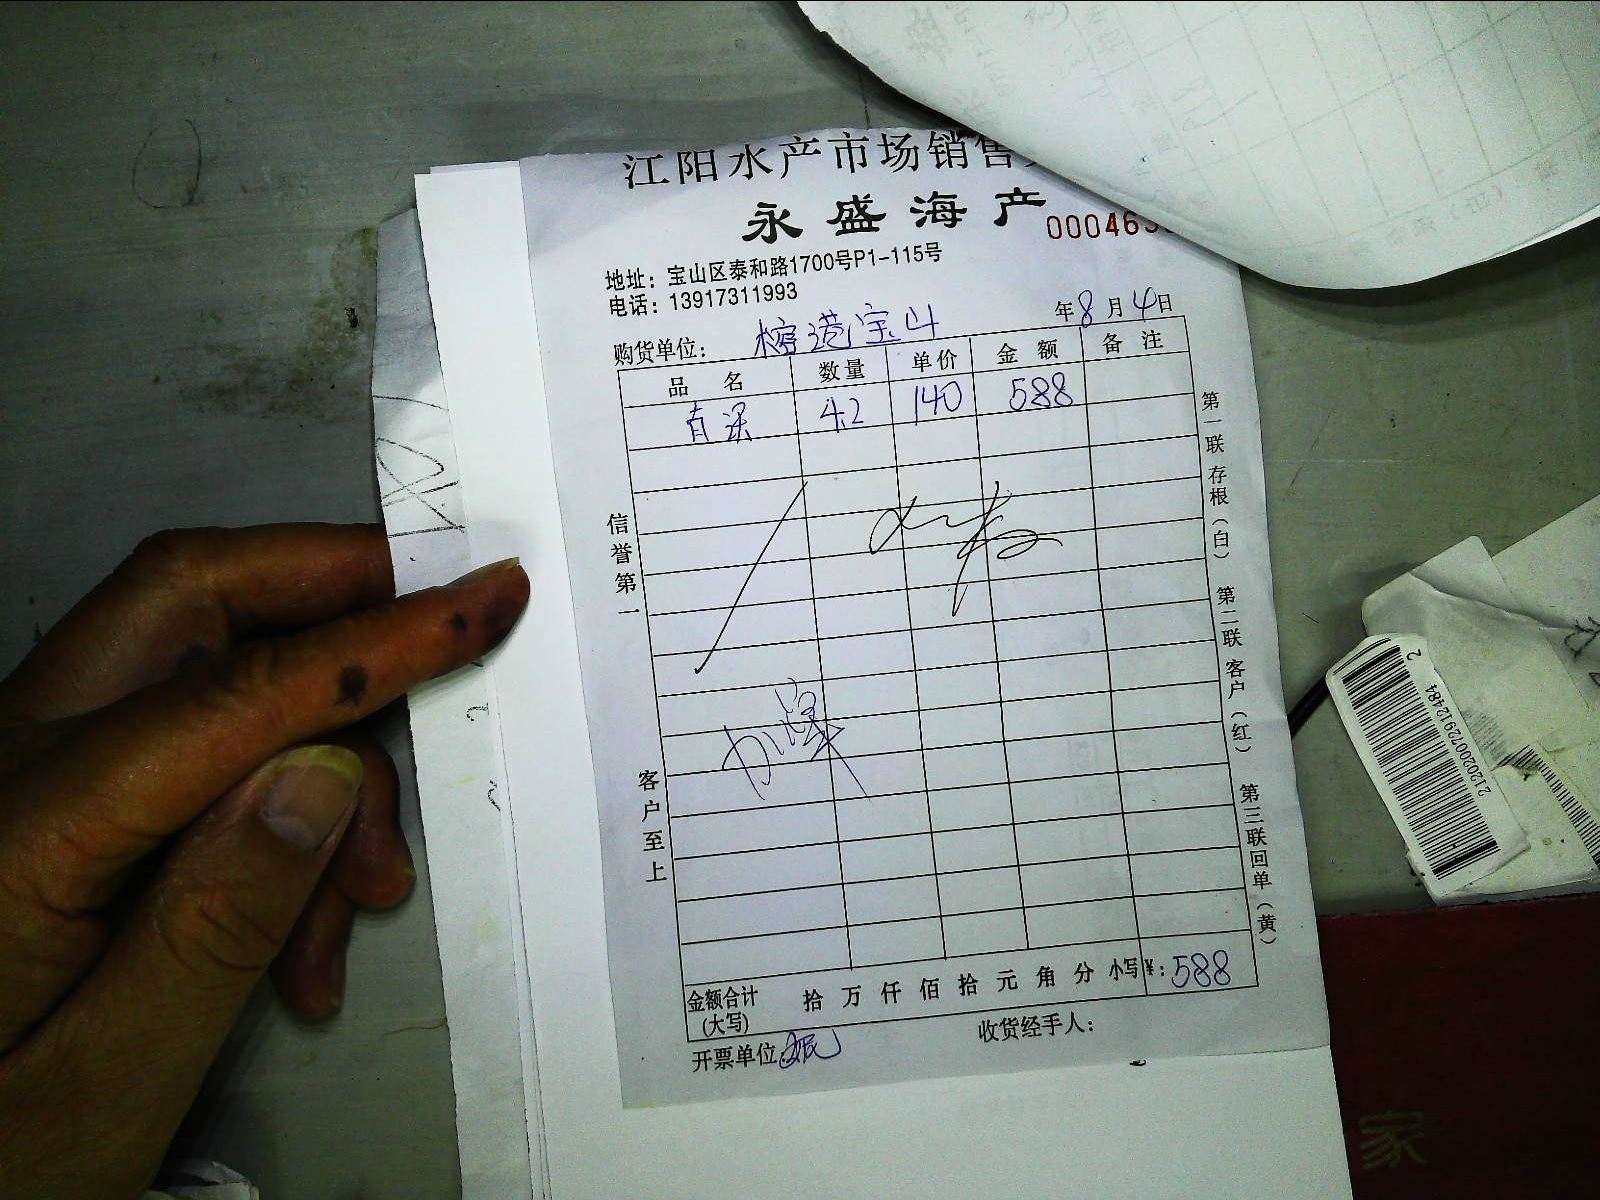 江阳水产市场销售
永盛海产
000463
地址：宝山区泰和路1700号P1-115号
电话：13917311993
购货单位：榕港宝山 年8月4日
品名 数量 单价 金额 备注
4.2 140 588
信誉第一
客户至上
第一联存根（白） 第二联客户（红） 第三联回单（黄）
金额合计（大写） 拾万仟佰拾元角分 小写¥：588
开票单位 收货经手人：
212020072912484
2
家